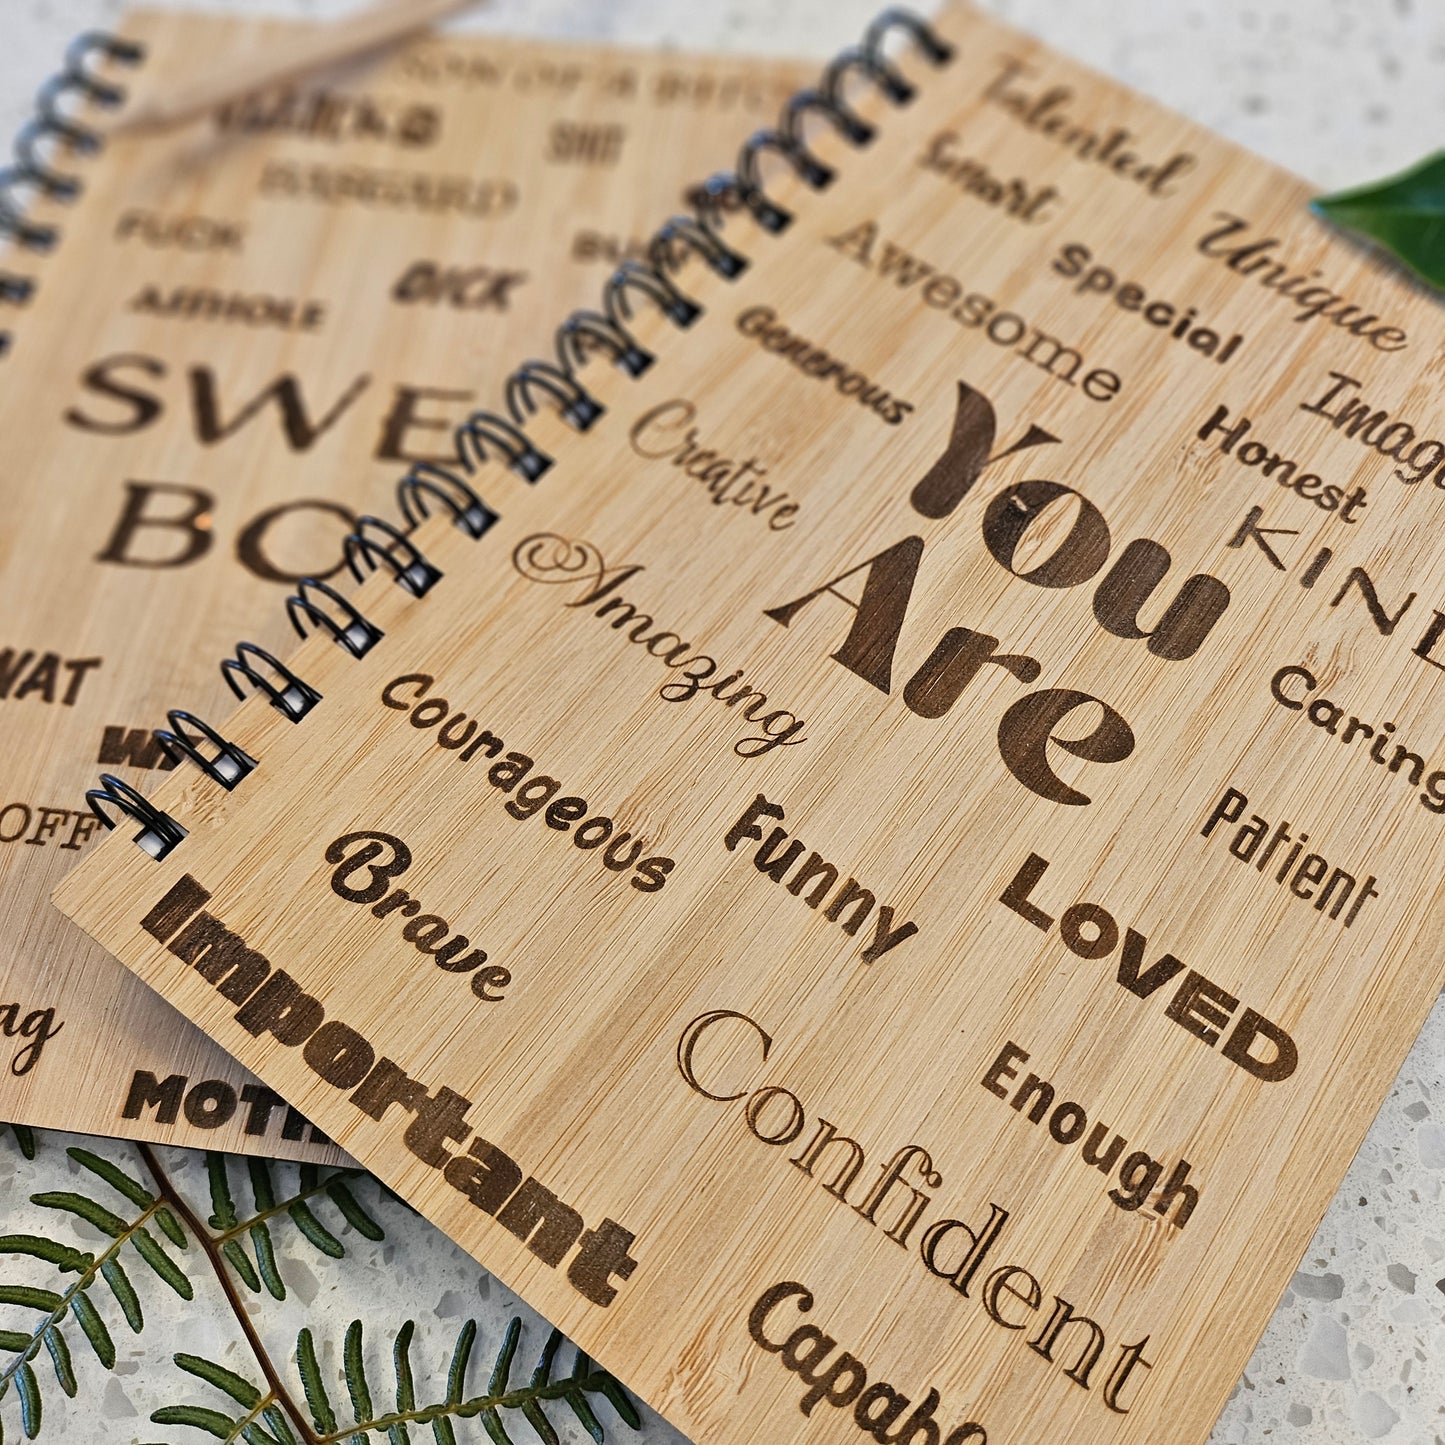 SON OF A BITC
SHIT
BASTARD
FUCK
BU
ASSHOLE
DICK
SWE
BO
WAT
WA
OFF
ag
MOTH
Talented
Smart
Unique
Awesome
Special
Generous
Image
Honest
Creative
You
Are
KIND
Amazing
Caring
Courageous
Patient
Funny
Brave
LOVED
Important
Enough
Confident
Capab